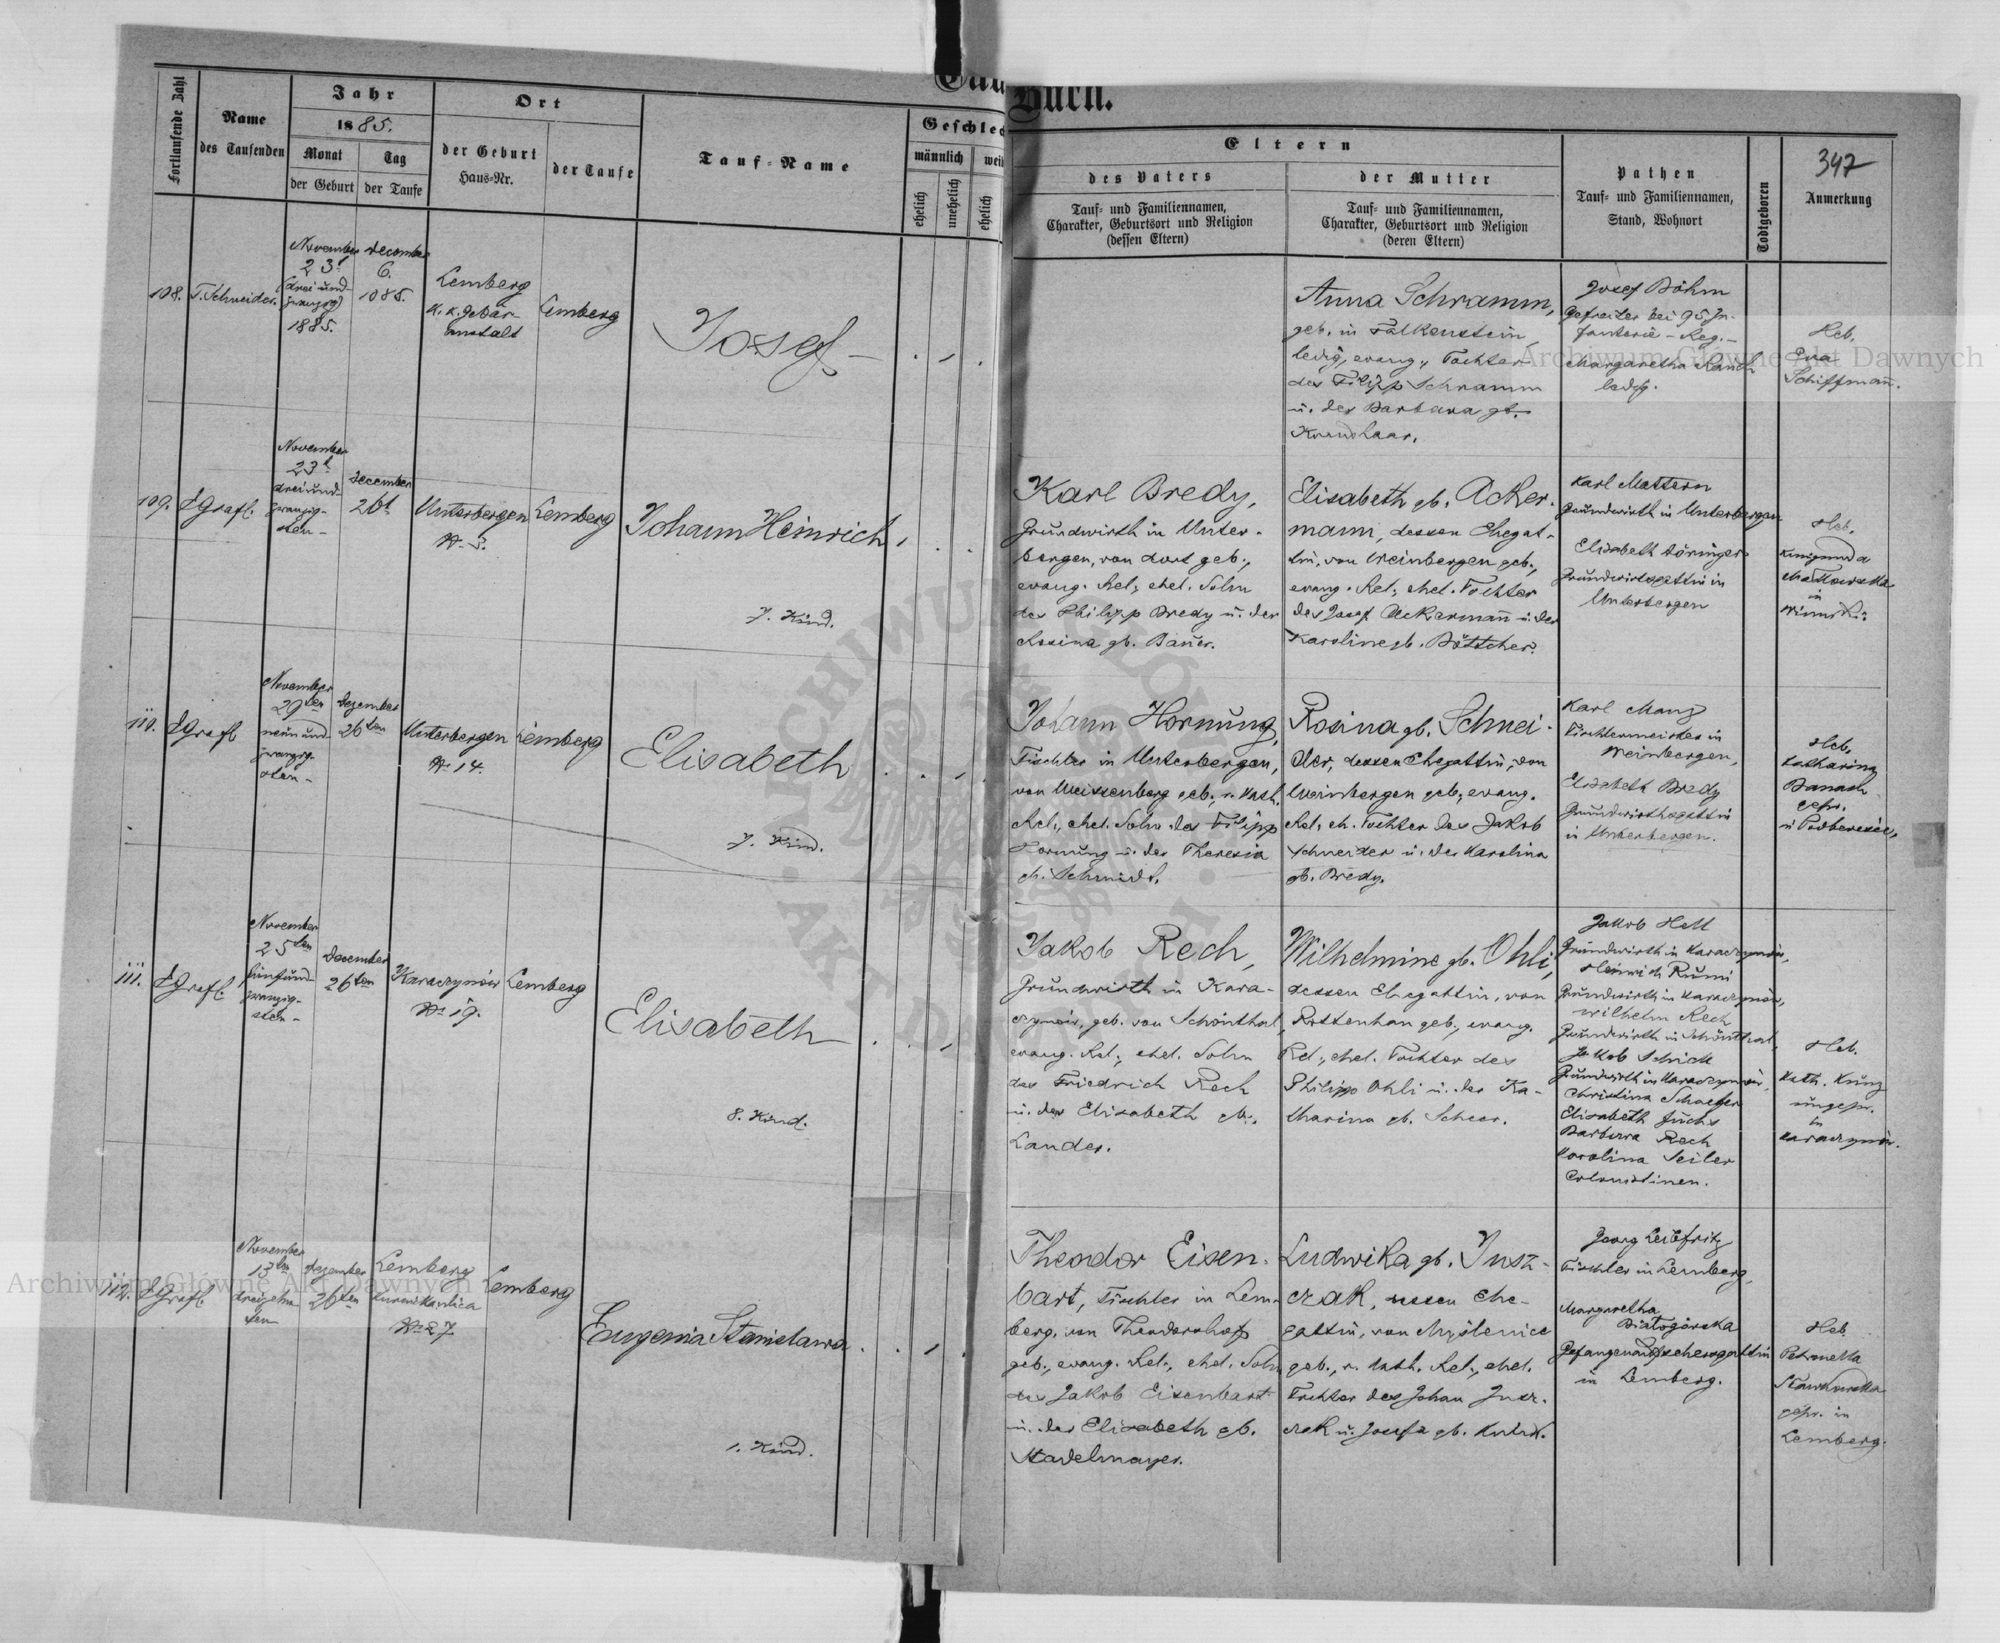 Tauf-Buch.
Fortlaufende Zahl
Name
des Taufenden
Jahr
1885.
Monat
der Geburt
Tag
der Taufe
Ort
der Geburt
Haus-Nr.
der Taufe
Tauf-Name
Geschlec
männlich
wei
ehelich
unehelich
ehelich
Eltern
des Vaters
Tauf- und Familiennamen,
Charakter, Geburtsort und Religion
(dessen Eltern)
der Mutter
Tauf- und Familiennamen,
Charakter, Geburtsort und Religion
(deren Eltern)
Pathen
Tauf- und Familiennamen,
Stand, Wohnort
Todtgeboren
347
Anmerkung
108.
T. Schneider.
November
23t
(drei und-
zwanzig)
1885.
December
6.
1885.
Lemberg
k. k. Gebär-
anstalt
Lemberg
Josef
Anna Schramm,
geb. in Falkenstein
ledig, evang., Tochter
des Filipp Schramm
u. der Barbara gb.
Josef Böhm
Gefreiter bei 95 In-
fanterie-Reg.
Margaretha
ledig.
Heb.
Eva
Schiffmann.
109.
EGrafl.
November
23t
dreiund-
zwanzig-
sten
December
26t
Unterbergen
No 5.
Lemberg
Johann Heinrich
7. Kind.
Karl Bredy,
Grundwirth in Unter-
bergen, von dort geb.,
evang. Rel., ehel. Sohn
des Philipp Bredy u. der
Rosina gb. Bauer.
Elisabeth gb. Acker-
mann, dessen Ehegat-
tin, von Weinbergen geb.,
evang. Rel., ehel. Tochter
des Josef Ackermann u. der
Karoline gb. Böttcher.
Karl Mattern
Grundwirth in Unterbergen
Elisabeth Döringer
Grundwirthsgattin in
Unterbergen
Heb.
Kunigunda
in
Winniki
110.
EGrafl
November
29ten
neunund-
zwanzig-
sten
Dezember
26ten
Unterbergen
No 14.
Lemberg
Elisabeth
7. Kind.
Johann Hornung,
Tischler in Unterbergen,
von Weissenberg geb., r. kath.
Rel., ehel. Sohn des Filipp
Hornung u. der Theresia
gb. Schmidt.
Rosina gb. Schnei-
der, dessen Ehegattin, von
Weinbergen geb., evang.
Rel., eh. Tochter des Jakob
Schneider u. der Karolina
gb. Bredy.
Karl Manz
Tischlermeister in
Weinbergen,
Elisabeth Bredy
Grundwirthsgattin
in Unterbergen.
Heb.
Katharina
Banach
gepr.
111.
EGrafl.
November
25ten
fünfund-
zwanzig-
sten
December
26ten
Karaczynów
No 19.
Lemberg
Elisabeth
8. Kind.
Jakob Rech,
Grundwirth in Kara-
czynów, geb. von Schönthal,
evang. Rel., ehel. Sohn
des Friedrich Rech
u. der Elisabeth gb.
Lander.
Wilhelmine gb. Ohli,
dessen Ehegattin, von
Rottenhan geb., evang.
Rel., ehel. Tochter des
Philipp Ohli u. der Ka-
tharina gb. Scheer.
Jakob Hett
Grundwirth in Karaczynów,
Heinrich Rumi
Grundwirth in Karaczynów,
Wilhelm Rech
Grundwirth in Schönthal,
Jakob Schick
Grundwirth in Karaczynów,
Christina Schaefer
Elisabeth Fuchs
Barbara Rech
Karolina Seiler
Colonistinen.
Heb.
Kath. Kunz
ungepr.
in
Karaczynów.
112.
EGrafl
November
13ten
dreizehn-
ten
Dezember
26ten
Lemberg
No 27
Lemberg
Eugenia Stanislawa
1. Kind.
Theodor Eisen-
bart, Tischler in Lem-
berg, von Theodorshof
geb., evang. Rel., ehel. Sohn
des Jakob Eisenbart
u. der Elisabeth gb.
Stadelmayer.
Ludwika gb. Jusz-
czak, dessen Ehe-
gattin, von Myślenice
geb., r. kath. Rel., ehel.
Tochter des Johan Jusz-
czak u. Josefa gb.
Georg Leibfritz
Tischler in Lemberg,
Margaretha
Białogórska
in Lemberg.
Heb.
Petronella
gepr. in
Lemberg.
Archiwum Główne Akt Dawnych
Archiwum Główne Akt Dawnych